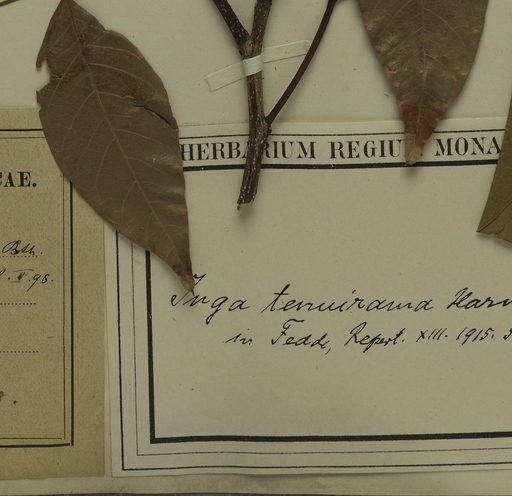 CAE.
Bth.
V. 98.
HERBARIUM REGIUM MONA
Inga tenuirama Harm
in Fedde, Repert. XIII. 1915.